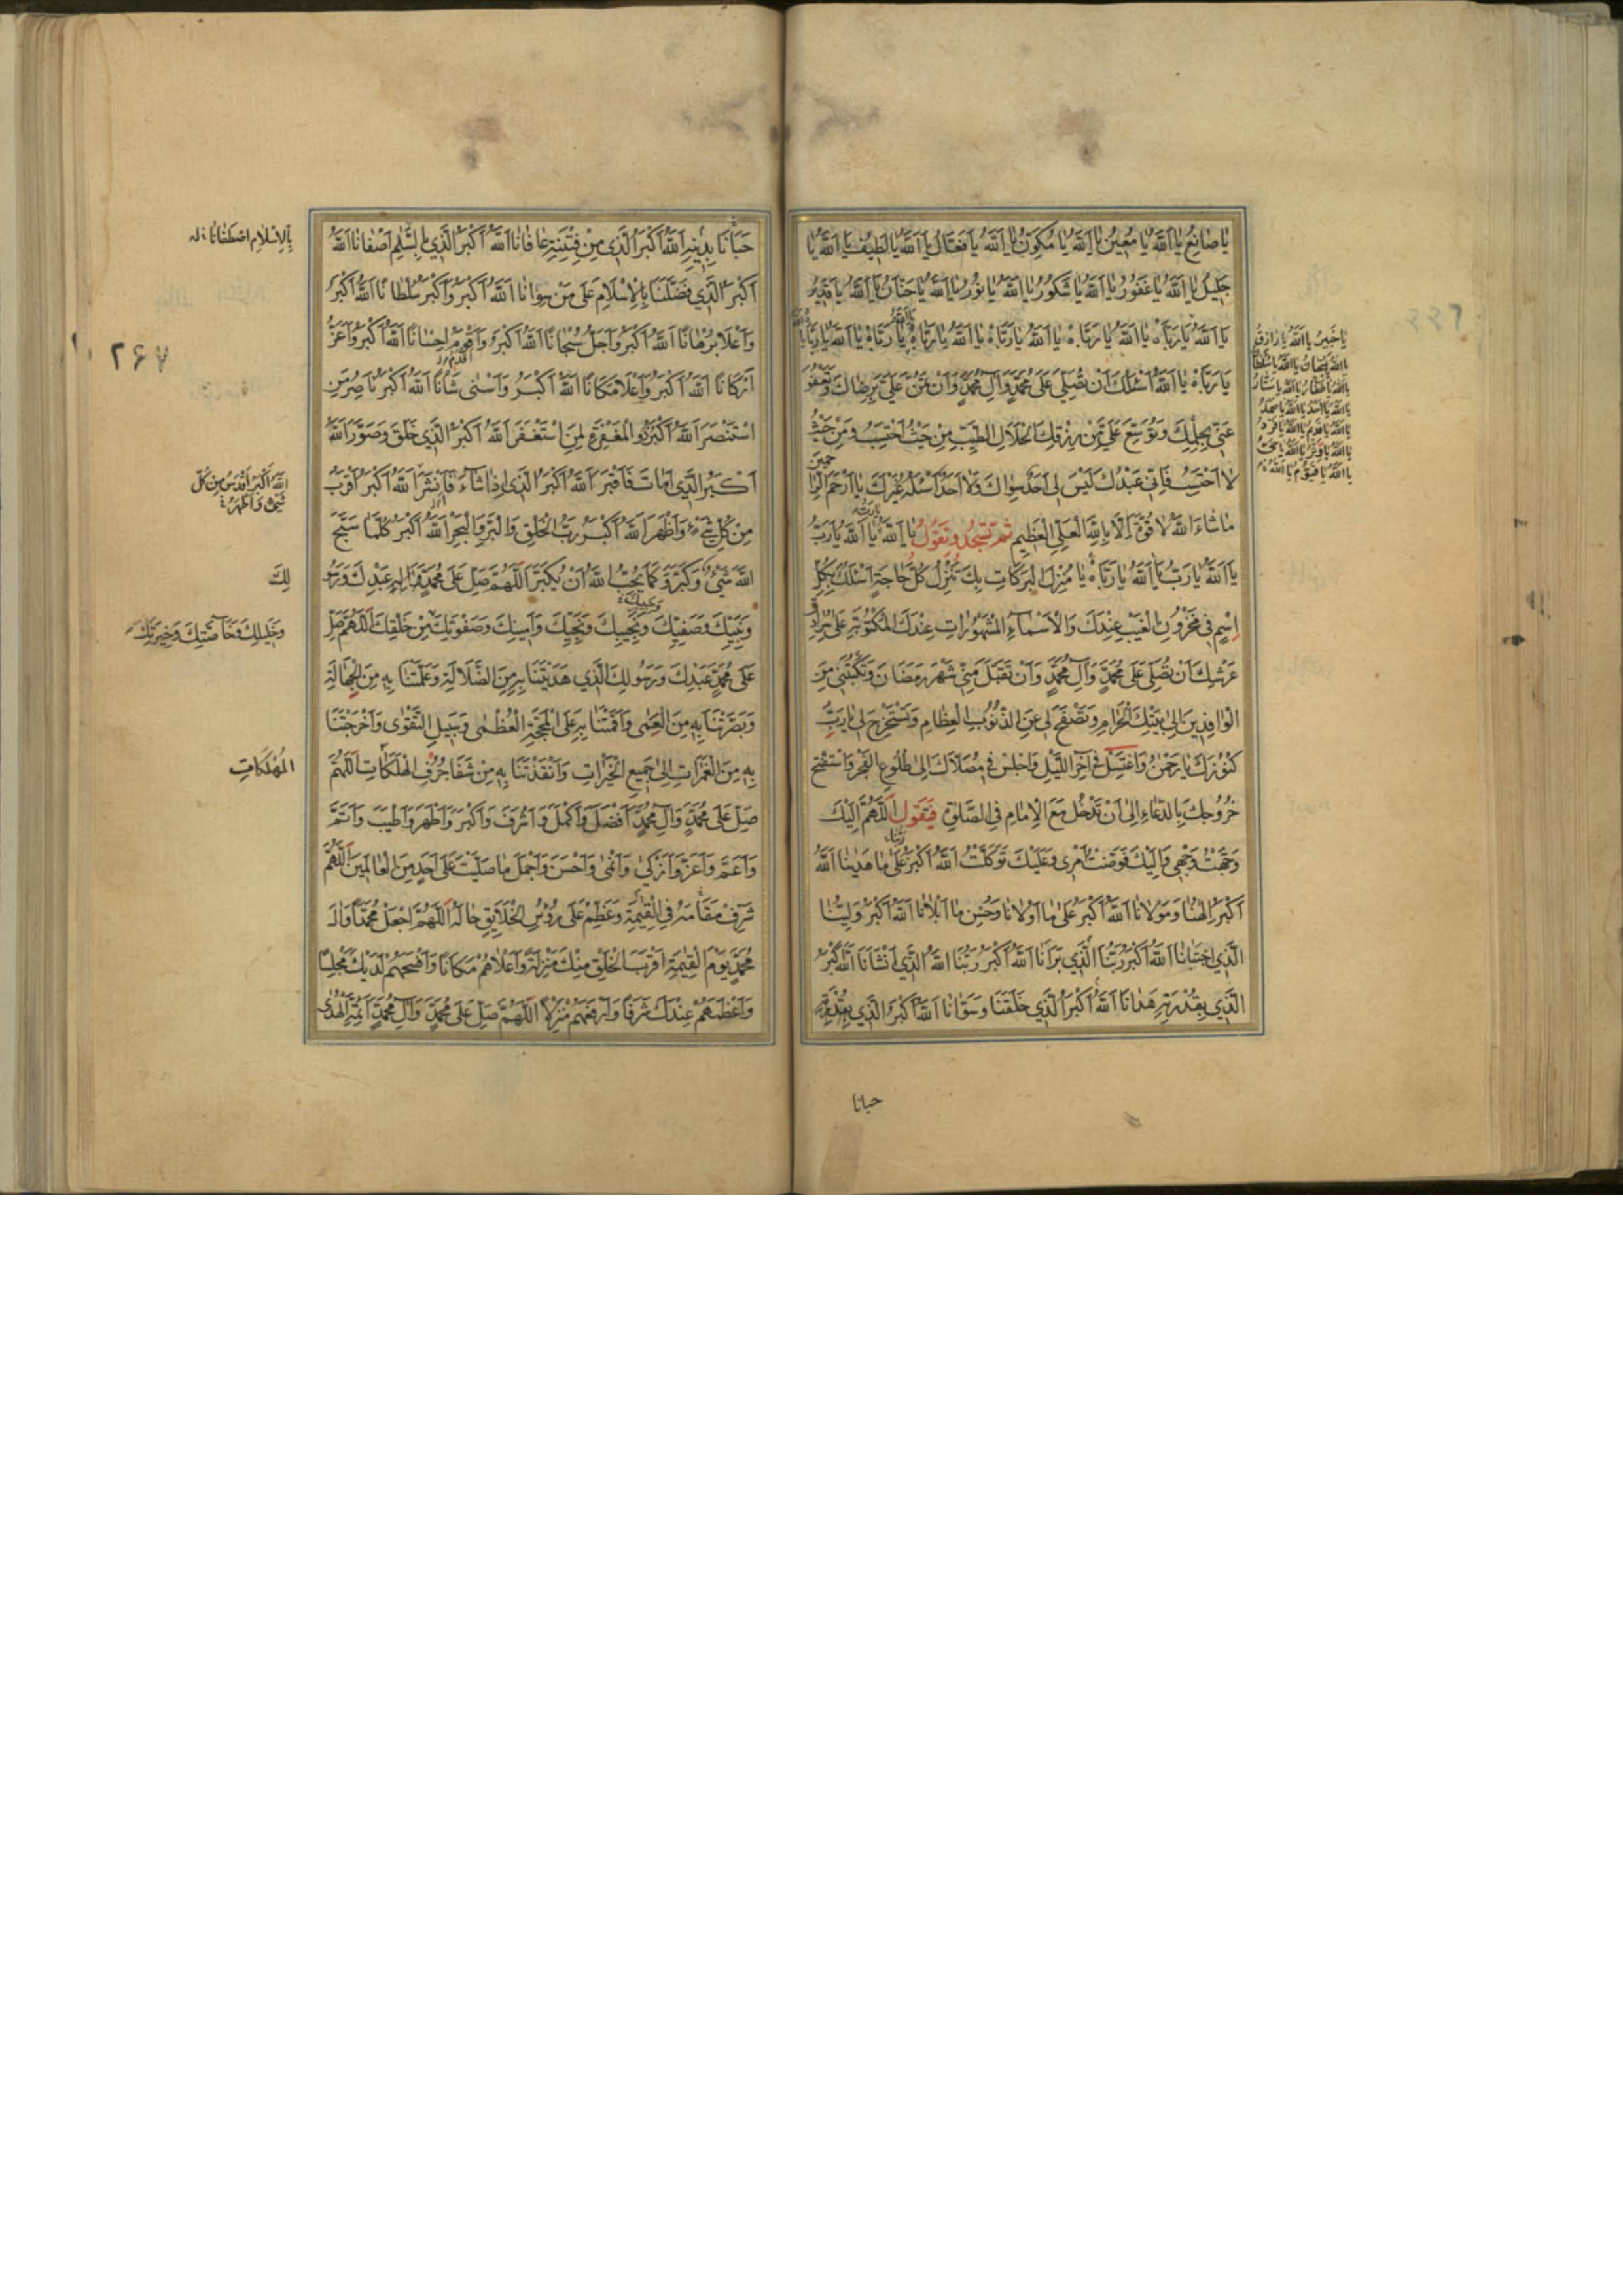 يا صانِعُ يا اَللّٰهُ يا مُعينُ يا اَللّٰهُ يا مُكَوِّنُ يا اَللّٰهُ يا فَعّالُ يا اَللّٰهُ يا لَطيفُ يا اَللّٰهُ يا
جَليلُ يا اَللّٰهُ يا غَفُورُ يا اَللّٰهُ يا شَكُورُ يا اَللّٰهُ يا نُورُ يا اَللّٰهُ يا حَنّانُ يا اَللّٰهُ يا قَديرُ
يا اَللّٰهُ يا رَبّاهُ يا اَللّٰهُ يا رَبّاهُ يا اَللّٰهُ يا رَبّاهُ يا اَللّٰهُ يا رَبّاهُ يا رَبّاهُ يا اَللّٰهُ يا رَبّاهُ
يا رَبّاهُ يا اَللّٰهُ اَسْئَلُكَ اَنْ تُصَلِّيَ عَلى مُحَمَّدٍ وَآلِ مُحَمَّدٍ وَاَنْ تَمُنَّ عَلَيَّ بِرِضاكَ وَتَعْفُوَ
عَنّي بِحِلْمِكَ وَتُوَسِّعَ عَلَيَّ مِنْ رِزْقِكَ الْحَلالِ الطَّيِّبِ مِنْ حَيْثُ اَحْتَسِبُ وَمِنْ حَيْثُ
لا اَحْتَسِبُ فَاِنّي عَبْدُكَ لَيْسَ لي اَحَدٌ سِواكَ وَلا اَحَدٌ اَسْئَلُهُ غَيْرُكَ يا اَرْحَمَ الرّاحِمينَ
ما شاءَ اللّٰهُ لا قُوَّةَ اِلّا بِاللّٰهِ الْعَلِيِّ الْعَظيمِ ثُمَّ تَسْجُدُ وَتَقُولُ يا اَللّٰهُ يا اَللّٰهُ يا رَبُّ
يا اَللّٰهُ يا رَبُّ يا اَللّٰهُ يا رَبّاهُ يا مُنْزِلَ الْبَرَكاتِ بِكَ تُنْزَلُ كُلُّ حاجَةٍ اَسْئَلُكَ بِكُلِّ
اِسْمٍ في مَخْزُونِ الْغَيْبِ عِنْدَكَ وَالْاَسْماءِ الْمَشْهُوراتِ عِنْدَكَ الْمَكْتُوبَةِ عَلى سُرادِقِ
عَرْشِكَ اَنْ تُصَلِّيَ عَلى مُحَمَّدٍ وَآلِ مُحَمَّدٍ وَاَنْ تَقْبَلَ مِنّي شَهْرَ رَمَضانَ وَتَكْتُبَني مِنَ
الْوافِدينَ اِلى بَيْتِكَ الْحَرامِ وَتَصْفَحَ لي عَنِ الذُّنُوبِ الْعِظامِ وَتَسْتَخْرِجَ لي يا رَبِّ
كُنُوزَكَ يا رَحْمٰنُ وَاغْتَسِلْ في آخِرِ اللَّيْلِ وَاجْلِسْ في مُصَلّاكَ اِلى طُلُوعِ الْفَجْرِ وَاسْتَفْتِحْ
خُرُوجَكَ بِالدُّعاءِ اِلى اَنْ تَدْخُلَ مَعَ الْاِمامِ فِي الصَّلوةِ فَتَقُولُ اَللّٰهُمَّ اِلَيْكَ
وَجَّهْتُ وَجْهي وَاِلَيْكَ فَوَّضْتُ اَمْري وَعَلَيْكَ تَوَكَّلْتُ اَللّٰهُ اَكْبَرُ عَلى ما هَدينا اَللّٰهُ
اَكْبَرُ اِلٰهُنا وَمَوْلانا اَللّٰهُ اَكْبَرُ عَلى ما اَوْلانا وَحُسْنِ ما اَبْلانا اَللّٰهُ اَكْبَرُ وَلِيُّنا
الَّذِي اجْتَبانا اَللّٰهُ اَكْبَرُ رَبُّنَا الَّذي بَرَاَنا اَللّٰهُ اَكْبَرُ رَبُّنا اَللّٰهُ الَّذي اَنْشَاَنا اَللّٰهُ اَكْبَرُ
الَّذي بِقُدْرَتِهِ هَدانا اَللّٰهُ اَكْبَرُ الَّذي خَلَقَنا وَسَوّانا اَللّٰهُ اَكْبَرُ الَّذي
حبانا
يا خَبيرُ يا اَللّٰهُ يا رازِقُ
حَبانا بِدينِهِ اَللّٰهُ اَكْبَرُ الَّذي مِنْ فِتْنَتِهِ عافانا اَللّٰهُ اَكْبَرُ الَّذي اَصْفانا اَللّٰهُ
اَكْبَرُ الَّذي فَضَّلَنا بِالْاِسْلامِ عَلى مَنْ سِوانا اَللّٰهُ اَكْبَرُ وَاَكْبَرُ سُلْطانًا اَللّٰهُ اَكْبَرُ
وَاَعْلا بُرْهانًا اَللّٰهُ اَكْبَرُ وَاَجَلُّ سُبْحانًا اَللّٰهُ اَكْبَرُ وَاَقْدَمُ اِحْسانًا اَللّٰهُ اَكْبَرُ وَاَعَزُّ
اَرْكانًا اَللّٰهُ اَكْبَرُ وَاَعْلا مَكانًا اَللّٰهُ اَكْبَرُ وَاَسْنى شَاْنًا اَللّٰهُ اَكْبَرُ ناصِرُ مَنِ
اسْتَنْصَرَ اَللّٰهُ اَكْبَرُ ذُو الْمَغْفِرَةِ لِمَنِ اسْتَغْفَرَ اَللّٰهُ اَكْبَرُ الَّذي خَلَقَ وَصَوَّرَ اَللّٰهُ
اَكْبَرُ الَّذي اَماتَ فَاَقْبَرَ اَللّٰهُ اَكْبَرُ الَّذي اِذا شاءَ فَاَنْشَرَ اَللّٰهُ اَكْبَرُ اَقْرَبُ
مِنْ كُلِّ شَيْءٍ وَاَظْهَرُ اَللّٰهُ اَكْبَرُ رَبُّ الْخَلْقِ وَالْبَرِّ وَالْبَحْرِ اَللّٰهُ اَكْبَرُ كُلَّما سَبَّحَ
اللّٰهَ شَيْءٌ وَكَبَّرَ وَكَما يُحِبُّ اللّٰهُ اَنْ يُكَبَّرَ اَللّٰهُمَّ صَلِّ عَلى مُحَمَّدٍ وَآلِهِ عَبْدِكَ وَرَسُو
وَنَبِيِّكَ وَصَفِيِّكَ وَنَجيبِكَ وَنَجِيِّكَ وَاَمينِكَ وَصَفْوَتِكَ مِنْ خَلْقِكَ اَللّٰهُمَّ صَلِّ
عَلى مُحَمَّدٍ عَبْدِكَ وَرَسُولِكَ الَّذي هَدَيْتَنا بِهِ مِنَ الضَّلالَةِ وَعَلَّمْتَنا بِهِ مِنَ الْجَهالَةِ
وَبَصَّرْتَنا بِهِ مِنَ الْعَمى وَاَقَمْتَنا بِهِ عَلَى الْمَحَجَّةِ الْعُظْمى وَسَبيلِ التَّقْوى وَاَخْرَجْتَنا
بِهِ مِنَ الْغَمَراتِ اِلى جَميعِ الْخَيْراتِ وَاَنْقَذْتَنا بِهِ مِنْ شَفا جُرُفِ الْهَلَكاتِ اَللّٰهُمَّ
صَلِّ عَلى مُحَمَّدٍ وَآلِ مُحَمَّدٍ اَفْضَلَ وَاَكْمَلَ وَاَشْرَفَ وَاَكْبَرَ وَاَطْهَرَ وَاَطْيَبَ وَاَتَمَّ
وَاَعَمَّ وَاَعَزَّ وَاَزْكى وَاَنْمى وَاَحْسَنَ وَاَجْمَلَ ما صَلَّيْتَ عَلى اَحَدٍ مِنَ الْعالَمينَ اَللّٰهُمَّ
شَرِّفْ مَقامَهُ فِي الْقِيمَةِ وَعَظِّمْ عَلى رُؤُسِ الْخَلايِقِ حالَهُ اَللّٰهُمَّ اجْعَلْ مُحَمَّدًا وَآلَ
مُحَمَّدٍ يَوْمَ الْقِيمَةِ اَقْرَبَ الْخَلْقِ مِنْكَ مَنْزِلَةً وَاَعْلاهُمْ مَكانًا وَاَفْسَحَهُمْ لَدَيْكَ مَجْلِسًا
وَاَعْظَمَهُمْ عِنْدَكَ شَرَفًا وَاَرْفَعَهُمْ مَنْزِلًا اَللّٰهُمَّ صَلِّ عَلى مُحَمَّدٍ وَآلِ مُحَمَّدٍ اَئِمَّةِ الْهُدى
بِالْاِسْلامِ اصْطَفانا
۲۶۷
اَللّٰهُ اَكْبَرُ اَقْدَسُ مِنْ كُلِّ
شَيْءٍ وَاَظْهَرُ
لِكَ
وَخَليلِكَ وَخاصَّتِكَ وَخِيَرَتِكَ
الْمُهْلَكاتِ